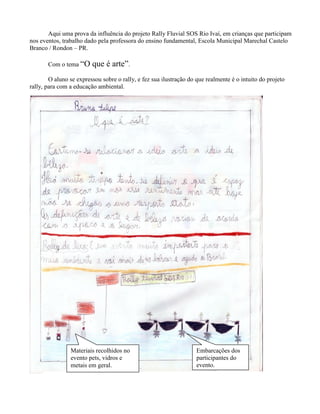 Aqui uma prova da influência do projeto Rally Fluvial SOS Rio Ivaí, em crianças que participam
nos eventos, trabalho dado pela professora do ensino fundamental, Escola Municipal Marechal Castelo
Branco / Rondon – PR.
Com o tema “O que é arte”.
O aluno se expressou sobre o rally, e fez sua ilustração do que realmente é o intuito do projeto
rally, para com a educação ambiental.
Bruna
O que é arte?
relacionar a ideia arte a ideia de
beleza.
Há muito tempo tenta-se definir o que é capaz
de provocar em nós esse sentimento mas até hoje
não se chegou a uma resposta exata.
As definições de arte e de beleza variam de acordo
com a época e o lugar.
muito importante para o
meio ambiente e vai
Materiais recolhidos no
evento pets, vidros e
metais em geral.
Embarcações dos
participantes do
evento.